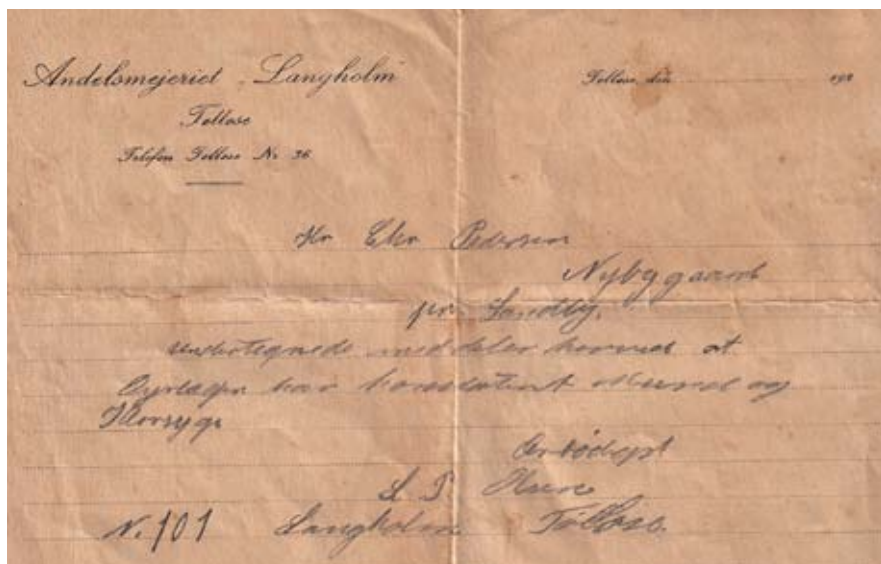 Andelsmejeriet Langholm
Tølløse, den 192
Tølløse
Telefon Tølløse Nr. 36
Hr Chr Pedersen
Nybygaard
pr. Sandby.
undertegnede meddeler herved at
Dyrlægen har konstateret Mund og
Klovsyge
Ærbødigst
L. P. Olsen
N. 101 Langholm Tølløse.